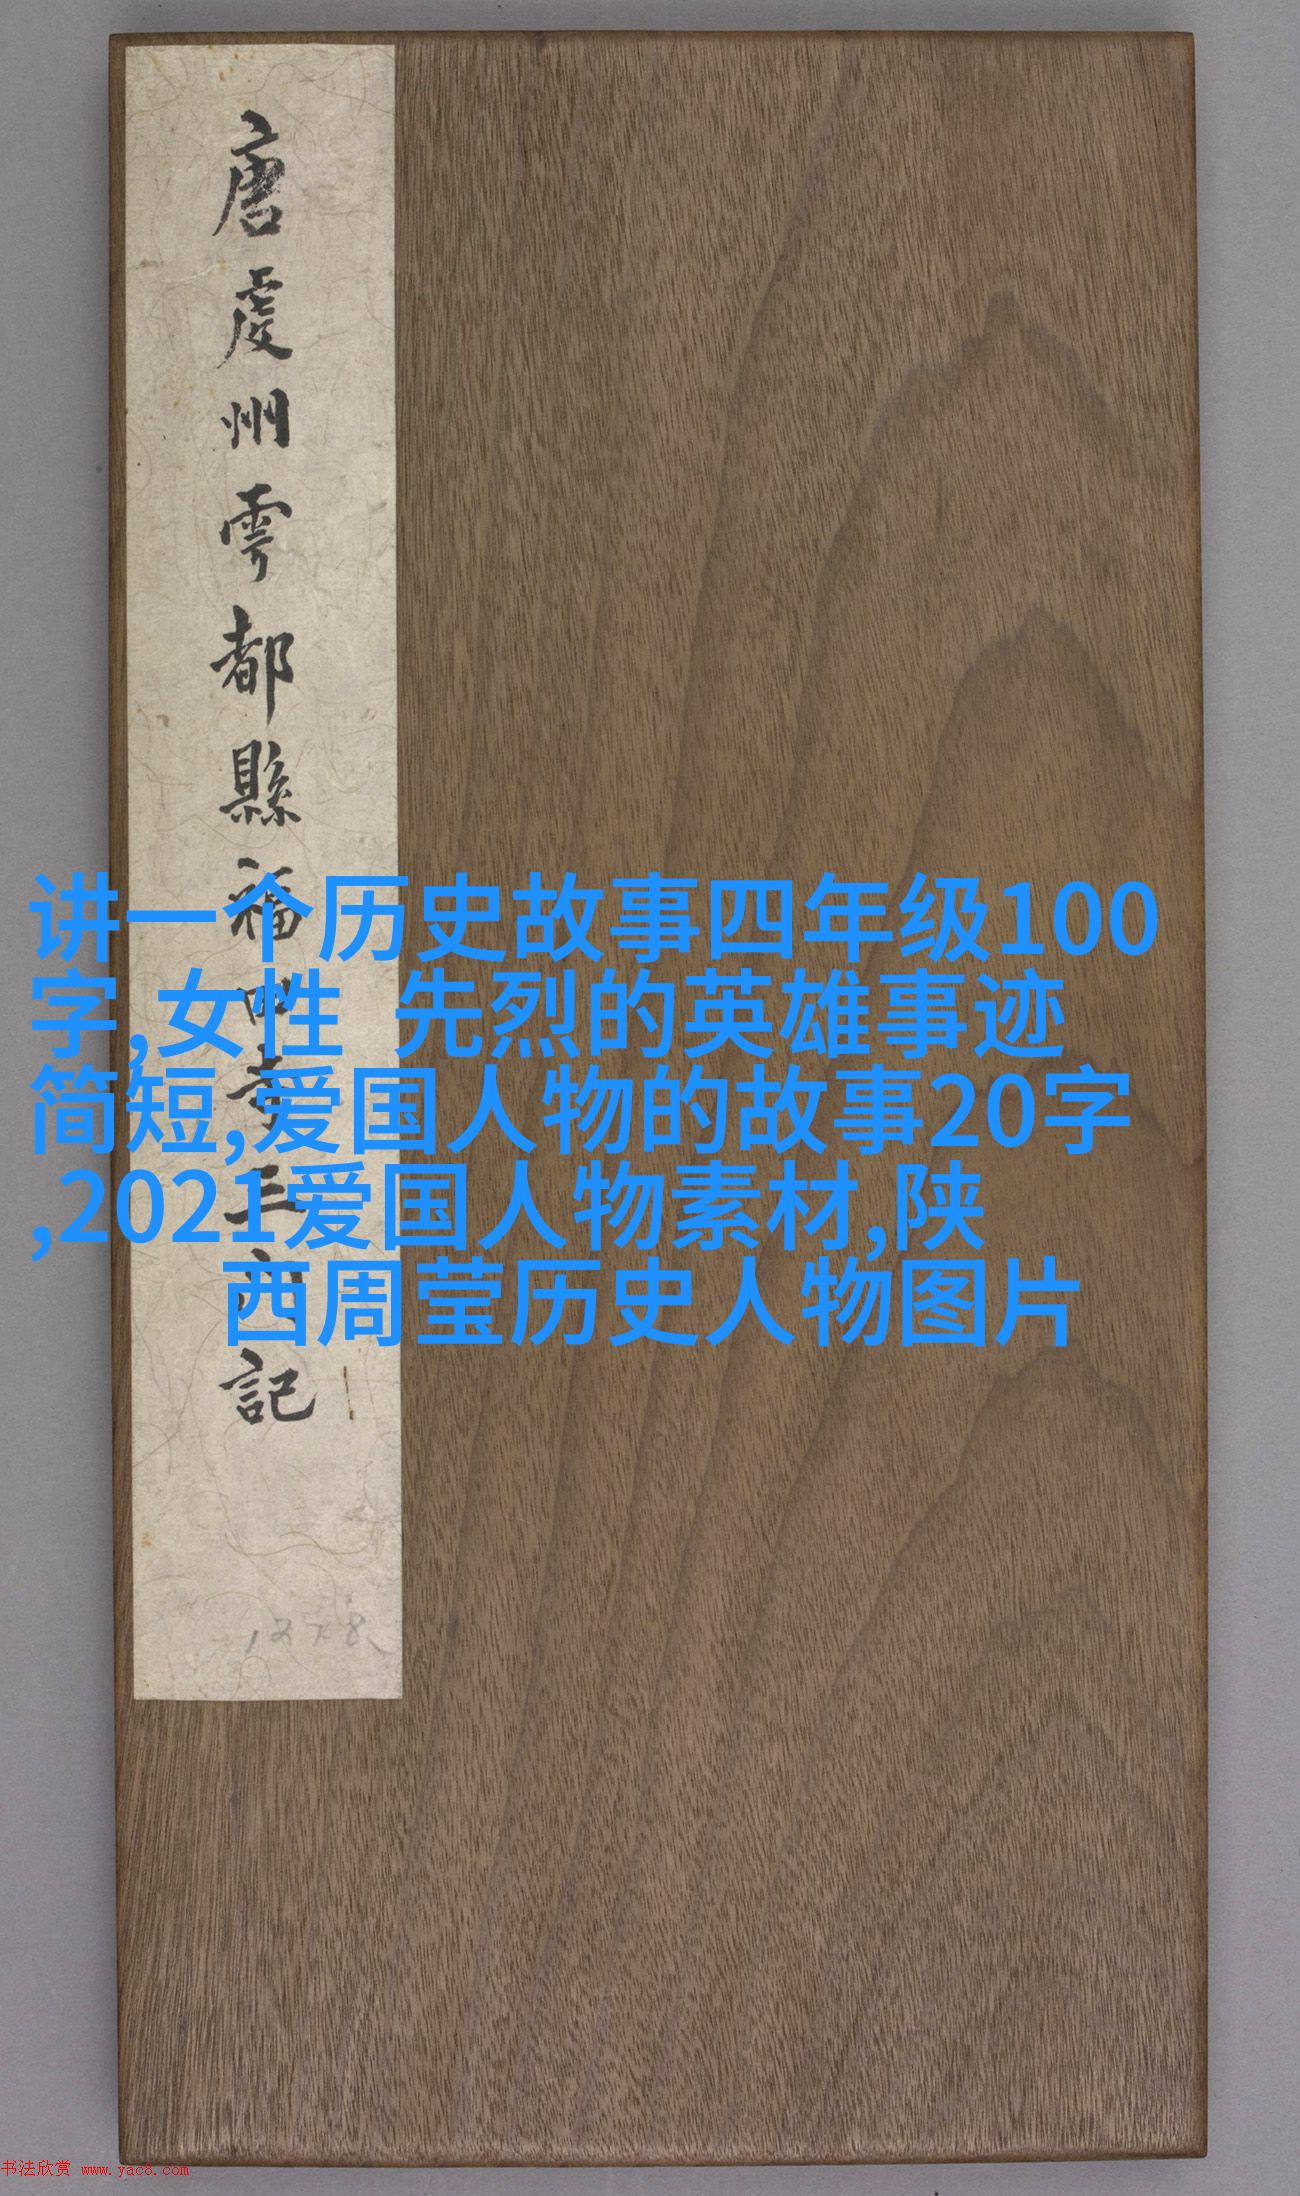 唐虔州雩都縣福田寺三門記
讲一个历史故事四年级100
字,女性  先烈的英雄事迹
简短,爱国人物的故事20字
,2021爱国人物素材,陕
西周莹历史人物图片
书法欣赏 www.yac8.com